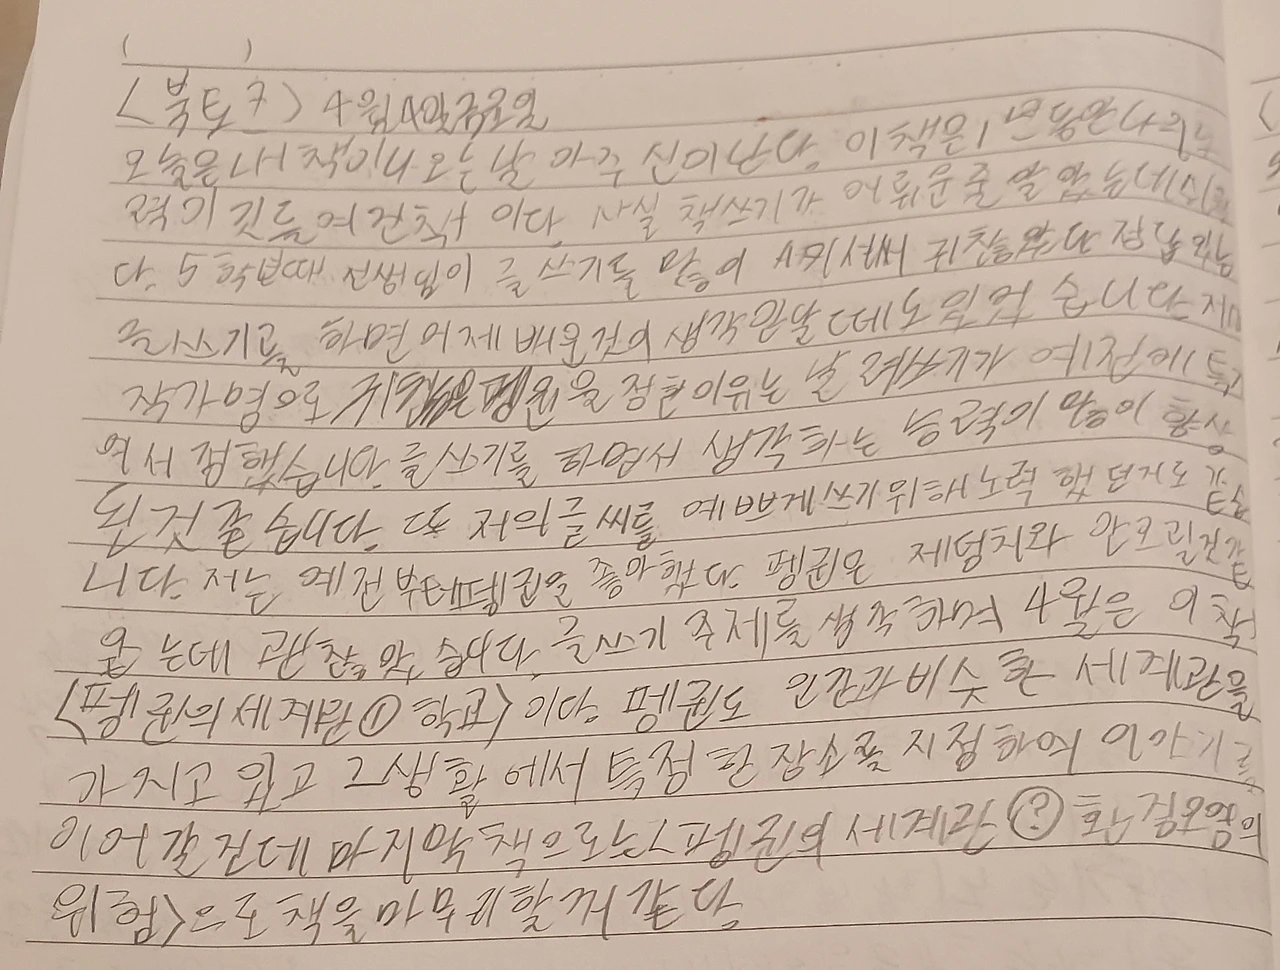 ( )
<북토크> 4월4일금요일
오늘은 내 책이나오는날 아주 신이난다. 이책은 1년동안나의노
력이 깃들여진책 이다. 사실 책쓰기가 어려운줄 알았는데
다. 5학년때 선생님이 글쓰기를 많이 시켜서 귀찮았다
글쓰기를 하면 어제 배운것이 생각안날때도 있었습니다
작가명으로 펭귄을 정한이유는 예전에
여서 정했습니다. 글쓰기를 하면서 생각하는 능력이 많이 향상
된것같습니다. 또 저의글씨를 예쁘게쓰기위해노력했던거도 같습
니다. 저는 예전부터펭귄을 좋아했다. 펭귄은
는데 글쓰기 주제를 생각하며 4월은 이책
<펭귄의세계관① 학교>이다. 펭귄도 인간과비슷한 세계관을
가지고 있고 그생활에서 특정한장소를 지정하여 이야기를
이어갈건데 마지막책으로는<펭귄의 세계관 ? 환경오염의
위험>으로책을마무리할꺼같다